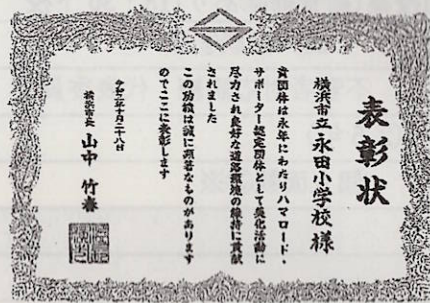 表彰状
横浜市立永田小学校様
貴団体は永年にわたりハマロード・
サポーター認定団体として美化活動に
尽力され良好な道路環境の維持に貢献
されました
この功績は誠に顕著なものがあります
のでここに表彰します
横浜市長 山中竹春